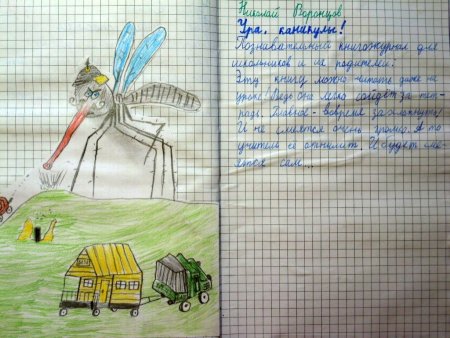 Николай Воронцов
Ура, каникулы!
Познавательный книгожурнал для
школьников и их родителей!
Эту книгу можно читать даже на
уроке! Ведь она легко сойдёт за тет-
радь. Главное - вовремя захлопнуть!
И не смеяться очень громко. А то
учитель её отнимет. И будет сме-
яться сам...